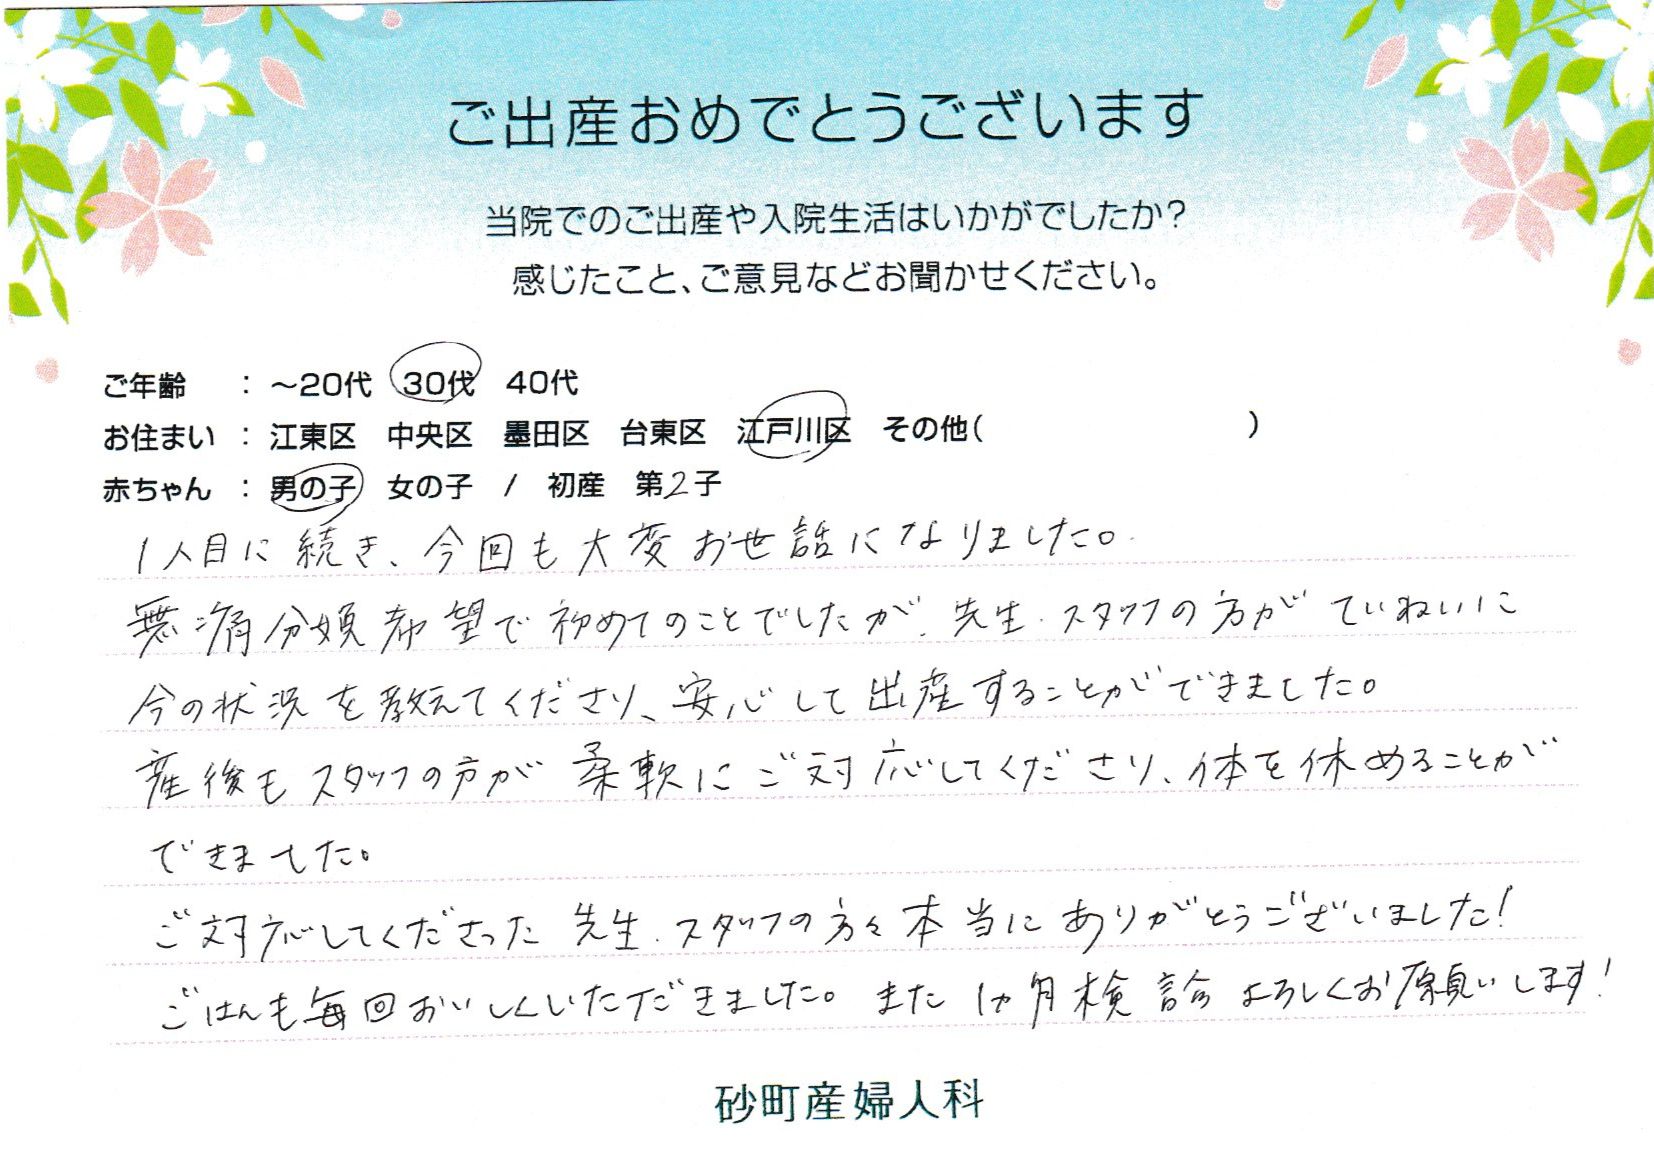 ご出産おめでとうございます
当院でのご出産や入院生活はいかがでしたか?
感じたこと、ご意見などお聞かせください。
ご年齢 : ～20代 30代 40代
お住まい : 江東区 中央区 墨田区 台東区 江戸川区 その他( )
赤ちゃん : 男の子 女の子 / 初産 第2子
1人目に続き、今回も大変お世話になりました。
無痛分娩希望で初めてのことでしたが、先生、スタッフの方がていねいに
今の状況を教えてくださり、安心して出産することができました。
産後もスタッフの方が柔軟にご対応してくださり、体を休めることが
できました。
ご対応してくださった先生、スタッフの方々本当にありがとうございました!
ごはんも毎回おいしくいただきました。また1ヵ月検診よろしくお願いします!
砂町産婦人科